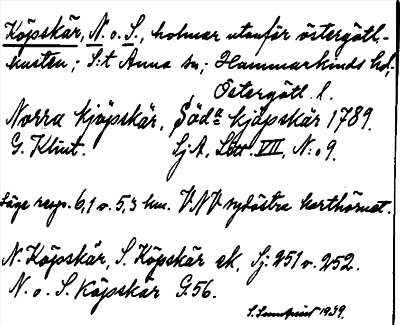 Köpskär, N. o. S., holmar utanför östergötl.-
kusten; S:t Anna sn; Hammarkinds hd,
Östergötl. l.
Norra kjöpskär, Södra kjöpskär 1789.
G. Klint. Sj A, Litt. VII, N:o 9.
Läge resp. 6,1 o. 5,3 km. VNV sydöstra karthörnet.
N. Köpskär, S. Köpskär ek. Sj. 251 o. 252.
N. o. S. Köpskär G. 56.
1939.